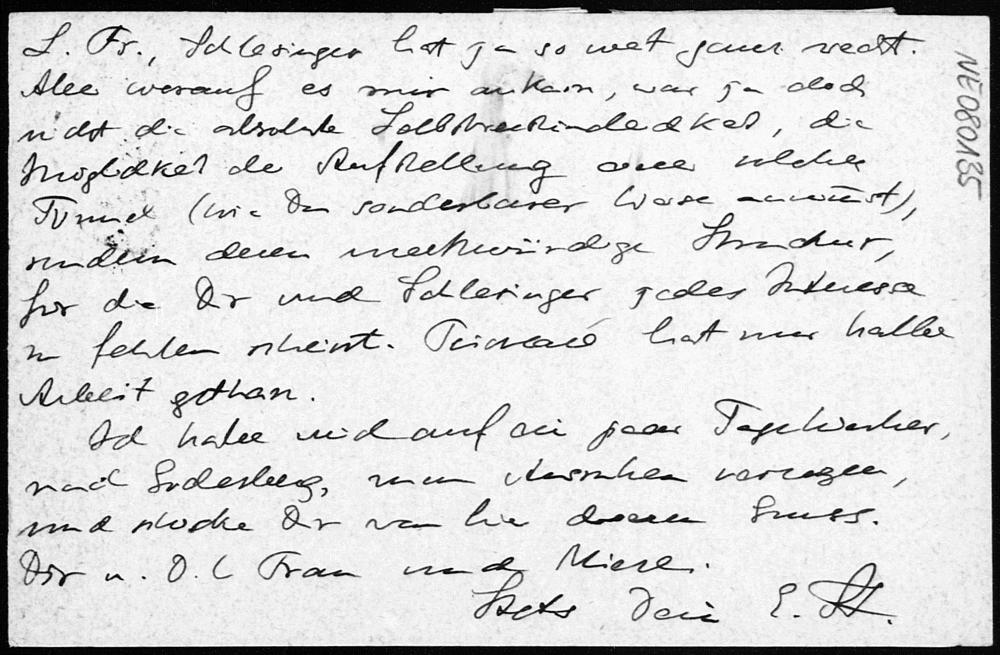 L. Fr., Schlesinger hat ja so weit ganz recht.
Aber worauf es mir ankam, war ja doch
nicht die absolute Selbstverständlichkeit, die
Möglichkeit der Aufstellung einer solchen
(wie Du sonderbarer Weise annimmst),
sondern deren merkwürdige Structur,
für die Dir und Schlesinger jedes Interesse
zu fehlen scheint. Poincaré hat nur halbe
Arbeit gethan.
Ich habe mich auf ein paar Tage hierher,
nach Godesberg, zum Ausruhen verzogen,
und schicke Dir von hier diesen Gruss.
Dir u. D. l. Frau und
Stets Dein E. St.
NE080135